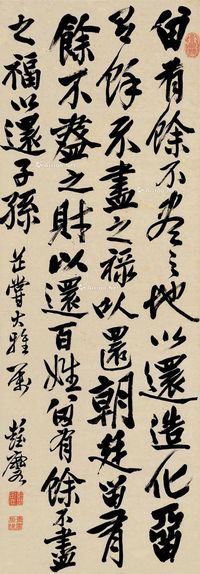 留有餘不盡之地以還造化留
有餘不盡之祿以還朝廷留有
餘不盡之財以還百姓留有餘不盡
之福以還子孫
大雅